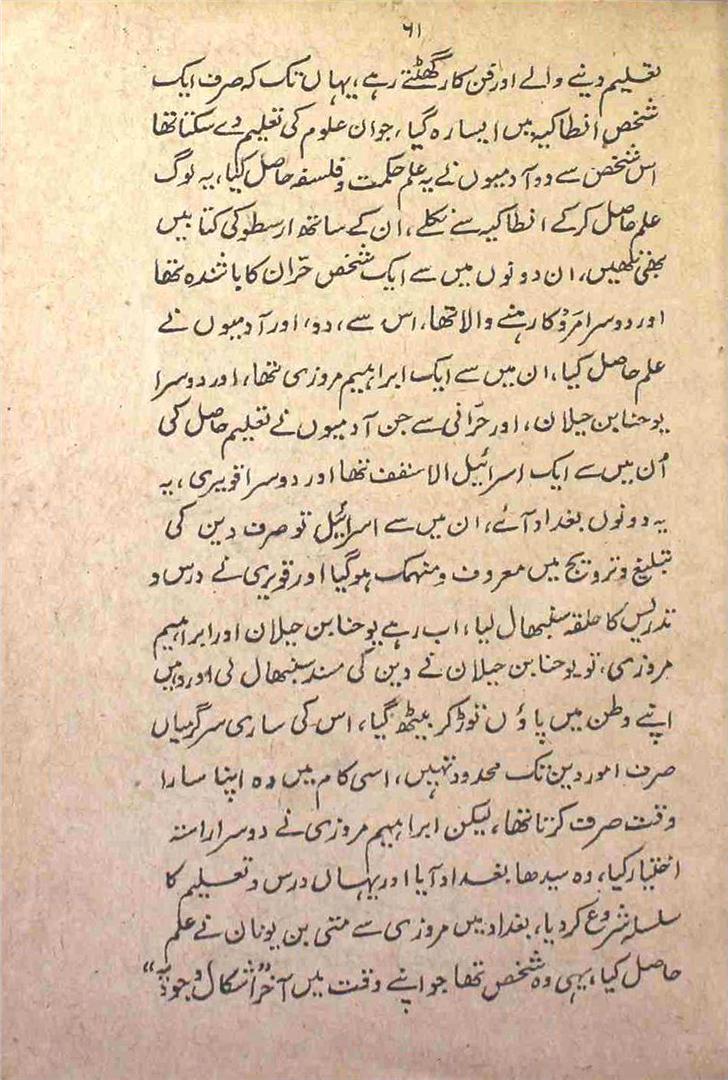 ۶۱
تعلیم دینے والے اور فن کار گھٹتے رہے، یہاں تک کہ صرف ایک
شخص انطاکیہ میں ایسا رہ گیا، جو ان علوم کی تعلیم دے سکتا تھا
اس شخص سے دو آدمیوں نے یہ علم حکمت و فلسفہ حاصل کیا، یہ لوگ
علم حاصل کرکے انطاکیہ سے نکلے، ان کے ساتھ ارسطو کی کتابیں
بھی تھیں، ان دونوں میں سے ایک شخص حرّان کا باشندہ تھا
اور دوسرا مَرْو کا رہنے والا تھا، اس سے، دو، اور آدمیوں نے
علم حاصل کیا، ان میں سے ایک ابراہیم مروزی تھا، اور دوسرا
یوحنا بن جیلان، اور حرّانی سے جن آدمیوں نے تعلیم حاصل کی
اُن میں سے ایک اسرائیل الاسقف تھا اور دوسرا قویری، یہ
یہ دونوں بغداد آئے، ان میں سے اسرائیل تو صرف دین کی
تبلیغ و ترویج میں معروف و منہمک ہوگیا اور قویری نے درس و
تدریس کا حلقہ سنبھال لیا، اب رہے یوحنا بن جیلان اور ابراہیم
مروزی، تو یوحنا بن جیلان نے دین کی مسند سنبھال لی اور وہیں
اپنے وطن میں پاؤں توڑ کر بیٹھ گیا، اس کی ساری سرگرمیاں
صرف امور دین تک محدود تھیں، اسی کام میں وہ اپنا سارا
وقت صرف کرتا تھا، لیکن ابراہیم مروزی نے دوسرا راستہ
اختیار کیا، وہ سیدھا بغداد آیا اور یہاں درس و تعلیم کا
سلسلہ شروع کردیا، بغداد میں مروزی سے متی بن یونان نے علم
حاصل کیا، یہی وہ شخص تھا جو اپنے وقت میں آخر "اشکال وجودیہ"